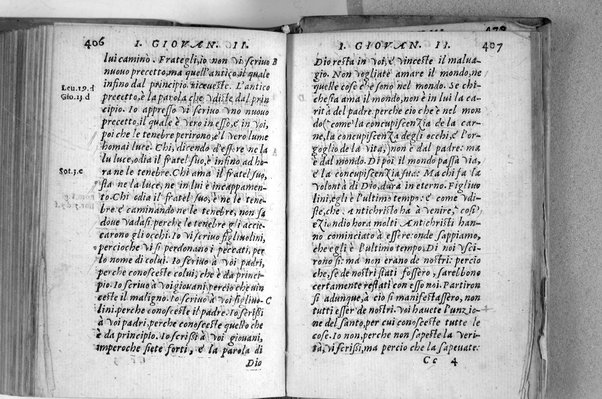 406 I. GIOVAN. II
lui camino. Frategli, io non vi scriuo B
nuouo precetto, ma quell'antico, il quale
infino dal principio riceueste. L'antico
Leu.19.d
precetto, è la parola che vdiste dal prin
Gio.13.d
cipio. Io appresso vi scriuo vno nuouo
precetto, il quale è vero in esso, e in voi,
poi che le tenebre perirono, e'l vero lume
homai luce. Chi, dicendo d'essere ne la
lu luce, odia il fratel suo, è infino ad ho
Sot.3.c
ra ne le tenebre. Chi ama il fratel suo,
sta ne la luce, ne in lui è inceappamen
to. Chi odia il fratel suo, è ne le tene
bre e caminando ne le tenebre, non sa
doue vadasi. perche le tenebre gli accie
carono gli occhi. Io vi scriuo figliuolini,
percioche vi si perdonano i peccati, per
lo nome di colui. Io scriuo à voi padri,
perche conosceste colui, che è da princi
pio. Io scriuo à voi giovani, percio che vin
ceste il maligno. Io scriuo à voi figliuo C
lini, perche conosceste il padre. Io scrißi
à voi padri, perche conosceste quello che
è da principio. Io scrißi à voi giouani,
imperoche siete forti, e la parola di
Dio
I. GIOVAN. II. 407
Dio resta in voi, e vinceste il malua-
gio. Non vogliate amare il mondo, ne
quelle cose che sono nel mondo. Se chi-
che sia ama il mondo, non è in lui la ca-
rità del padre. perche ciò che è nel mon
do (come la concupiscenzia de la car-
ne, la concupiscenzia degli occhi, e l'or-
goglio de la vita,) non è dal padre: ma
è dal mondo. Di poi il mondo passa via,
e la concupiscenzia sua: Ma chi fa la
volontà di Dio, dura in eterno. Figliuo
lini, egli è l'ultimo tempo: e come vdi-
ste, che Antichristo hà à venire, cosi
eziandio hora molti Antichristi han-
no cominciato à essere: onde sappiamo,
che egli è l'ultimo tempo. Di noi vsci-
rono si: ma non erano de nostri: percio
che, se de nostri stati fossero, sarebbono
certamente restati con esso noi. Partiron
si adunque, à ciò si manifestassero, non
tutti esser de nostri. voi hauete l'unzio
ne del santo, per cui conosceste tutte le
cose. Io non, perche non sapeste la veri-
tà, vi scrißi, ma percio che la sapeuate:
Cc 4